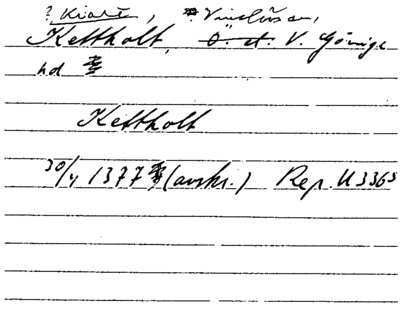 ? Kiarr, * Vinslövsn,
Kettholt, Ö. d. V. Göinge
hd
Kettholt
30/4 1377 (avskr.) Rep. U 3365